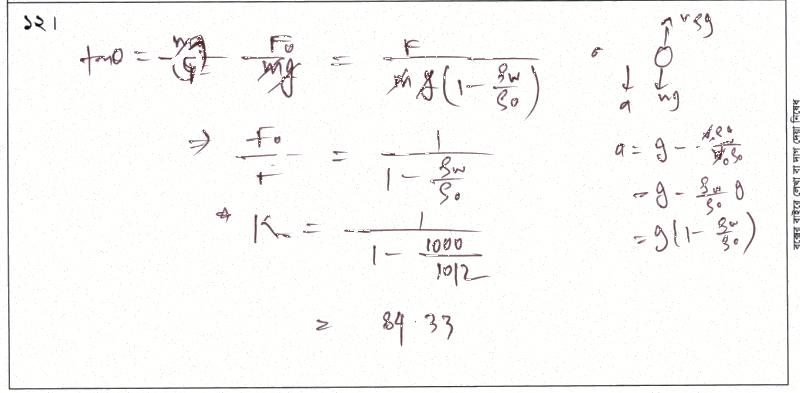 ১২।
tanθ = F₀/mg = F/(mg(1 - ρw/ρ₀))
⇒ F₀/F = 1/(1 - ρw/ρ₀)
K = 1/(1 - 1000/1012)
= 84.33
vρg
a mg
a = g -
= g - ρw/ρ₀ g
= g(1 - ρw/ρ₀)
বক্সের বাইরে লেখা বা দাগ দেয়া নিষেধ